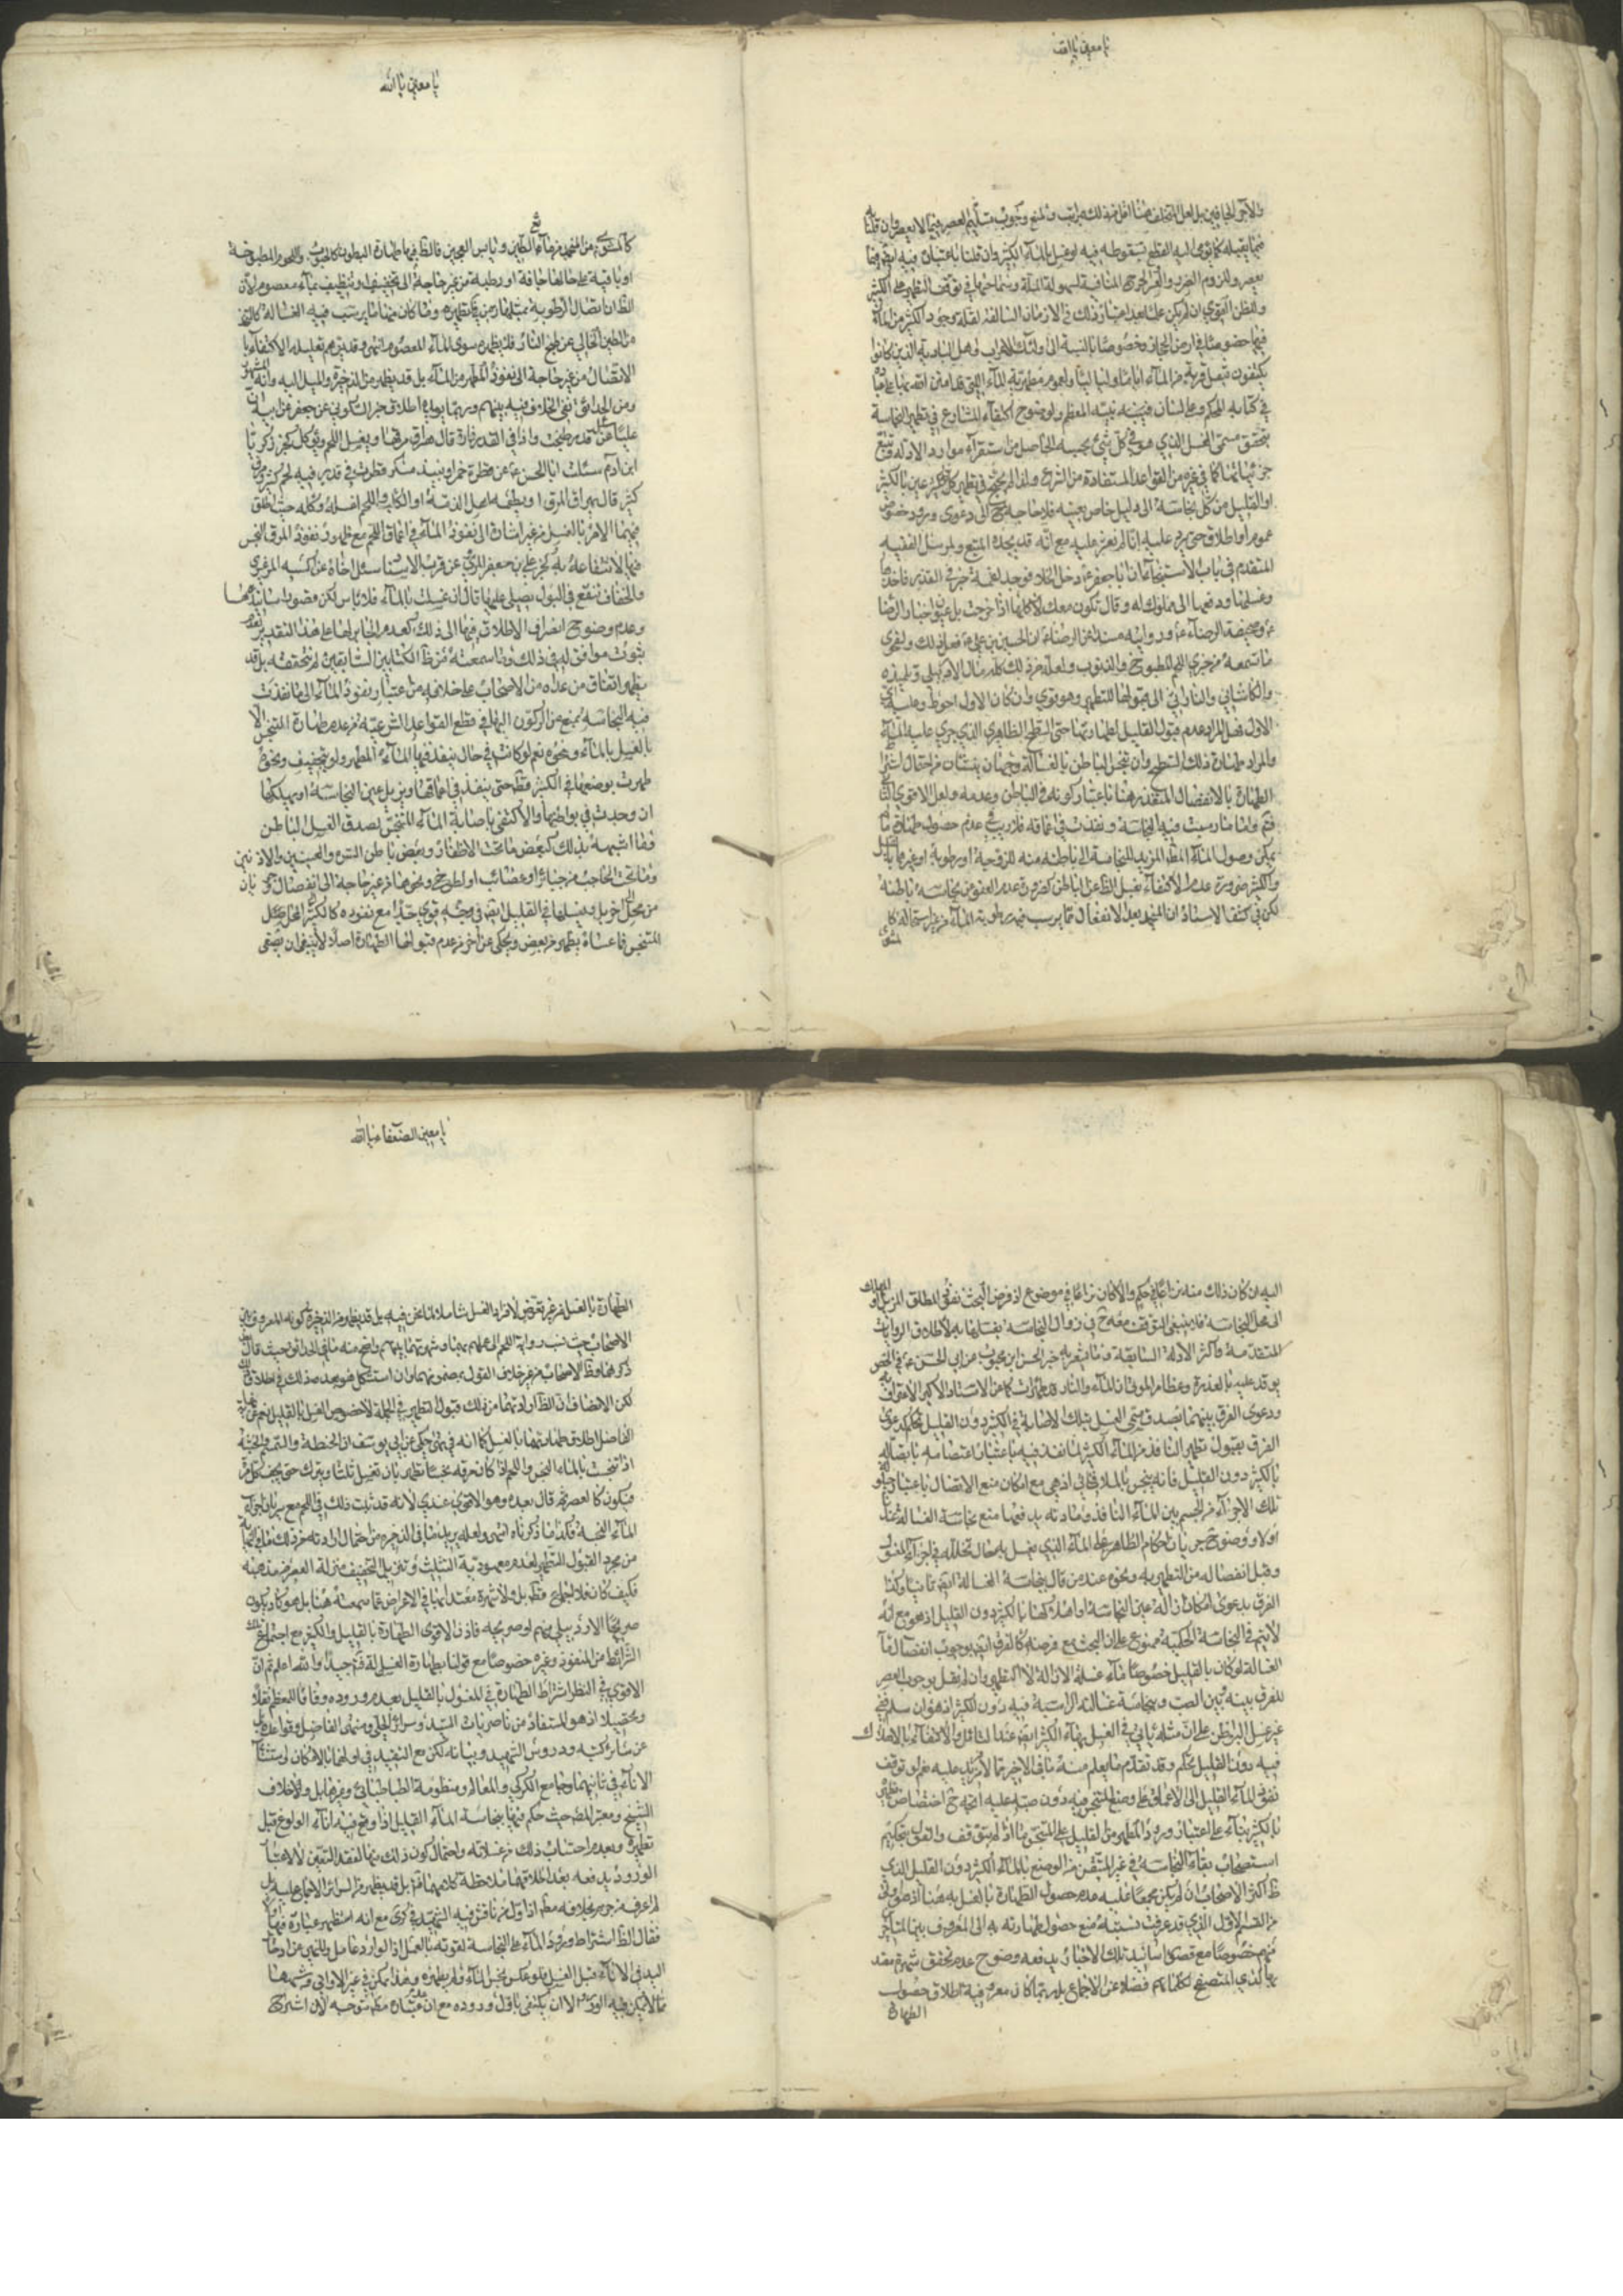 يا معين يا الله
والآجر
بل لعل
فيما لا يعصر وان قلنا
بالماء الكثير وان قلنا باعتبار
يعصر ولزوم الضرر والعسر والحرج المنافية لسهولة الملة وسماحتها في توقف التطهير على الكثير
والظن القوي ان لم يكن علما بعدم امتياز ذلك في الازمان السالفة لقلة وجود الكثير من الماء
فيها خصوصا في ارض الحجاز وخصوصا بالنسبة الى اولئك الاعراب واهل البادية الذين كانوا
يكتفون بحمل قربة من الماء اياما وليالي
في كتابه المحكم وعلى لسان نبيه المعظم ولوضوح اكتفاء الشارع في تطهير النجاسة
بتحقق مسمى الغسل الذي هو في كل شيء بحسبه الحاصل من استقراء موارد الادلة وتتبع
جزئياتها كما في غيره من القواعد المستفادة من الشرع ولذا لم يحتج في تطهير كل متنجس عين بالكثير
او القليل من كل نجاسة الى دليل خاص بعينه فلا حاجة ح الى دعوى ورود خصوص
عموم او اطلاق حتى يرد عليه انا لم نعثر عليه مع انه قد يجده المتتبع ولمرسل الفقيه
المتقدم في باب الاستنجاء ان ابا جعفر ع دخل الخلاء فوجد لقمة خبز في القذر فاخذها
وغسلها ودفعها الى مملوك له وقال تكون معك لآكلها اذا خرجت بل عن عيون اخبار الرضا
ع وصحيفة الرضا ع روايته مسندا عن الرضا ع ان الحسين بن علي ع فعل ذلك ولفحوى
ما تسمعه من خبري اللحم المطبوخ والذنوب ولعله من ذلك كله مال الاردبيلي وتلميذه
والكاشاني
الى قبولها للتطهير وهو قوي وان كان الاول احوط وعليه اي
الاول فهل المراد عدم قبول القليل لطهارتها حتى السطح الظاهري الذي جرى عليه الماء
والمراد طهارة ذلك السطح وان نجس الباطن بالغسالة وجهان ينشئان من احتمال اشتراط
الطهارة بالانفصال المتعذر هنا باعتبار كونه في الباطن وعدمه ولعل الاقوى الثاني
نعم واما ما رسبت فيه النجاسة ونفذت في اعماقه فلا ريب في عدم حصول طهارة ما
يمكن وصول الماء المطهر المزيل للنجاسة الى باطنه منه للزوجة او رطوبة او غيرها بالقليل
والكثير ضرورة عدم الاكتفاء بغسل الظاهر عن الباطن كضرورة عدم العفو من نجاسة باطنه
لكن في كشف الاستاد ان المتنجد بعد الانفعال مما يرسب فيه رطوبة الماء من غير استحالة له كا
لمشوي
يا معين يا الله
او باقية على حالها جافة او رطبة من غير حاجة الى تجفيف او تنظيف بماء معصوم لان
الظ ان اتصال الرطوبة بمثلها
وما كان منها مما يرسب فيه الغسالة كالخبز
من الطين الخالي عن طبخ النار فلا يطهره سوى الماء المعصوم انتهى وقد يتوهم تعليله الاكتفاء با
لاتصال من غير حاجة الى نفوذ المطهر من الماء بل قد يظهر من الذخيرة والميل اليه وانه المشهور
ومن الحدائق نفي الخلاف فيه بينهم وربما يؤيده اطلاق خبر السكوني عن جعفر عن ابيه ان
عليا ع سئل عن قدر طبخت واذا في القدر فارة قال يهراق مرقها ويغسل اللحم ويؤكل كخبر زكريا
ابن آدم سئلت ابا الحسن ع عن قطرة خمر او نبيذ مسكر قطرت في قدر فيه لحم كثير ومرق
كثير قال يهراق المرق او يطعمه اهل الذمة او الكلاب واللحم اغسله وكله حيث اطلق
فيهما الامر بالغسل من غير اشارة الى نفوذ الماء في اعماق اللحم مع ظهور نفوذ المرق النجس
والخفاف تنقع في البول يصلى عليها قال اذا غسلت بالماء فلا باس لكن قصور سانيدها
وعدم وضوح انصراف الاطلاق فيها الى ذلك كعدم الجابر لها على هذا التقدير لعدم
ثبوت موافق لهم في ذلك وما سمعته من ظ الكتابين السابقين لم نتحققه بل قد
يظهر اتفاق من عداه من الاصحاب على خلافه من اعتبار نفوذ الماء الى ما نفذت
فيه النجاسة يمنع من الركون اليها في قطع القواعد الشرعية من عدم طهارة المتنجس الا
بالغسل بالماء ونحوه نعم لو كانت في حال ينفذ فيها الماء المطهر ولو بتجفيف ونحوه
طهرت بوضعها في الكثير فظ حتى ينفذ في اعماقها ويزيل عين النجاسة او يهلكها
ان وجدت في بواطنها والاكتفى باصابة الماء المتنجس بصدق الغسل لباطن
وما اشبهه بذلك كبعض ما تحت الاظفار وبعض باطن السرة والعينين والاذنين
وما تحت الحاجب من جبائر او عصائب او لطوخ ونحوها من غير حاجة الى انفصال
من محل آخر بل وبغسلها في القليل ايضا في وجه قوي جدا مع نفوذه كالكثير الى محل
المتنجس
يظهر من بعض ويحكى عن آخر من عدم قبولها الطهارة اصلا لا ينبغي ان يصغى
اليه ان كان ذلك منه نزاعا في حكم والا كان نزاعا في موضوع اذ فرض البحث نفوذ المطلق المزيل او المهلك
الى محل النجاسة فلا ينبغي التوقف معه ح في زوال النجاسة بقسميها به لاطلاق الروايات
المتقدمة واكثر الادلة السابقة وما يشعر به خبر الحسن ابن محبوب عن ابي الحسن ع في الجص
يوقد عليه بالعذرة وعظام الموتى ان الماء والنار قد طهراه كما عن الاستاد الاكبر الاعتراف به
ودعوى الفرق بينهما بصدق مسمى الغسل بتلك الاصابة في الكثير دون القليل تحكم كدعوى
الفرق بقبول تطهير النافذ من الماء الكثير لما نفذ فيه باعتبار اعتصامه باتصاله
بالكثير دون القليل فانه ينجس بالملاقاة اذ هي مع امكان منع الاتصال باعتبار حيلولة
تلك الاجزاء من الجسم بين الماء النافذ ومادته يدفعها منع نجاسة الغسالة عندنا
اولا ووضوح جريان احكام الظاهر على الماء الذي يغسل به حال تخلله في اجزاء المغسول
وقبل انفصاله من التطهير به ونحوه عند من قال بنجاسة الغسالة ايضا ثانيا وكذا
الفرق بدعوى امكان ازالة عين النجاسة او اهلاكها بالكثير دون القليل اذ هو مع انه
لا يتم في النجاسة الحكمية ممنوع على ان البحث مع فرضه كالفرق ايضا بوجوب انفصال ماء
الغسالة لو كان بالقليل خصوصا ماء غسلة الازالة لا التطهير وان لم نقل بوجوب العصر
للفرق بينه وبين الصب ونجاسة غسالته الراسبة فيه دون الكثير اذ هو ان سلم ففي
غير غسل البواطن على ان مثله يأتي في الغسل بماء الكثير ايضا عند القائل والاكتفاء بالاهلاك
فيه دون القليل تحكم وقد تقدم ما يعلم منه ما في الاخير مما لا مزيد عليه نعم لو توقف
نفوذ الماء القليل الى الاعماق على وضع المتنجس فيه دون صبه عليه اتجه ح اختصاص تطهيره
بالكثير بناء على اعتبار ورود المطهر من القليل على المتنجس واما اذا لم يتوقف
استصحاب بقاء النجاسة في غير المتيقن من الوضع بالماء الكثير دون القليل الذي
ظ اكثر الاصحاب ان لم يكن مجمعا عليه عدم حصول الطهارة بالغسل به هنا
من القسم الاول الذي قد عرفت نسبته منع حصول طهارته به الى المعروف بين المتأخرين
منهم خصوصا مع قصور اسانيد تلك الاخبار يدفعه وضوح عدم تحقق شهرة معتد
بها لذي المتصفح لكلماتهم فضلا عن الاجماع بل ربما كان معروفية اطلاق حصول
الطهارة
يا معين الضعفاء يا الله
الطهارة بالغسل من غير تعرض لافراد الغسل شاملا لما نحن فيه بل قد يظهر من الذخيرة كونه المعروف بين
الاصحاب حيث نسب رواية اللحم الى عملهم بها وشهرتها بينهم واوضح منه ما في الحدائق حيث قال
ذكرهما وظ الاصحاب من غير خلاف القول بمضمونهما وان استشكل هو بعد ذلك في اطلاق ذلك
لكن الانصاف ان الظ ارادتها من ذلك قبول التطهير في الجملة لا خصوص الغسل بالقليل نعم عن نهاية
الفاضل اطلاق طهارتها بالغسل كما انه في منتهى حكى عن ابي يوسف ان الحنطة والسمسم والخشبة
اذا تنجست بالماء النجس واللحم اذا كان مرقه نجسا تطهر بان تغسل ثلثا وتترك حتى تجف كل مرة
فيكون كالعصر ثم قال بعده وهو الاقوى عندي لانه قد ثبت ذلك في اللحم مع سريان اجزاء
الماء النجسة فكذا ما ذكرناه انتهى ولعله يريد
من مجرد القبول للتطهير لعدم معهودية التثليث وتنزيل التجفيف منزلة العصر من مذهبه
فكيف كان فلا اجماع فظ بل ولا شهرة معتدا بها في الاعراض عما سمعته هنا بل هو كاد يكون
صريح الاردبيلي منهم او صريحه فاذن الاقوى الطهارة بالقليل والكثير مع اجتماع تلك
الشرائط من النفوذ وغيره خصوصا مع قولنا بطهارة الغسالة فتأمل جيدا والله اعلم ثم ان
الاقوى في النظر اشتراط الطهارة في المغسول بالقليل بعدم وروده وفاقا للمعظم نقلا
وتحصيلا اذ هو المستفاد من ناصريات السيد وسرائر الحلي ومنتهى الفاضل وقواعده بل
عن سائر كتبه ودروس الشهيد وبيانه لكن مع التقييد في اولهما بالامكان او استثناء
الاناء في ثانيهما وجامع الكركي والمعالم ومنظومة الطباطبائي وغيرها بل ولا خلاف
الشيخ ومعتبر المصنف حيث حكم فيها بنجاسة الماء القليل اذا وقع فيه اناء الولوغ قبل
تطهيره وبعدم احتساب ذلك من غسلاته واحتمال كون ذلك منهما لفقد التعفير لا لاعتبار
الورود يدفعه بعد اطلاقهما ملاحظة كلامهما بل قد يظهر من السرائر الاجماع عليه بل
لم اعرف من جزم بخلافه
اذ اول من ناقش فيه الشهيد في كرى مع انه استظهر اعتباره فيها
فقال الظ اشتراط ورود الماء على النجاسة لقوته بالعمل اذ الوارد عامل وللنهي عن ادخال
اليد في الاناء قبل الغسل فلو عكس نجس الماء ولم يطهره وهذا ممكن في غير الاواني وشبهها
مما لا يمكن فيه الورود الا ان يكتفى باول وروده مع ان